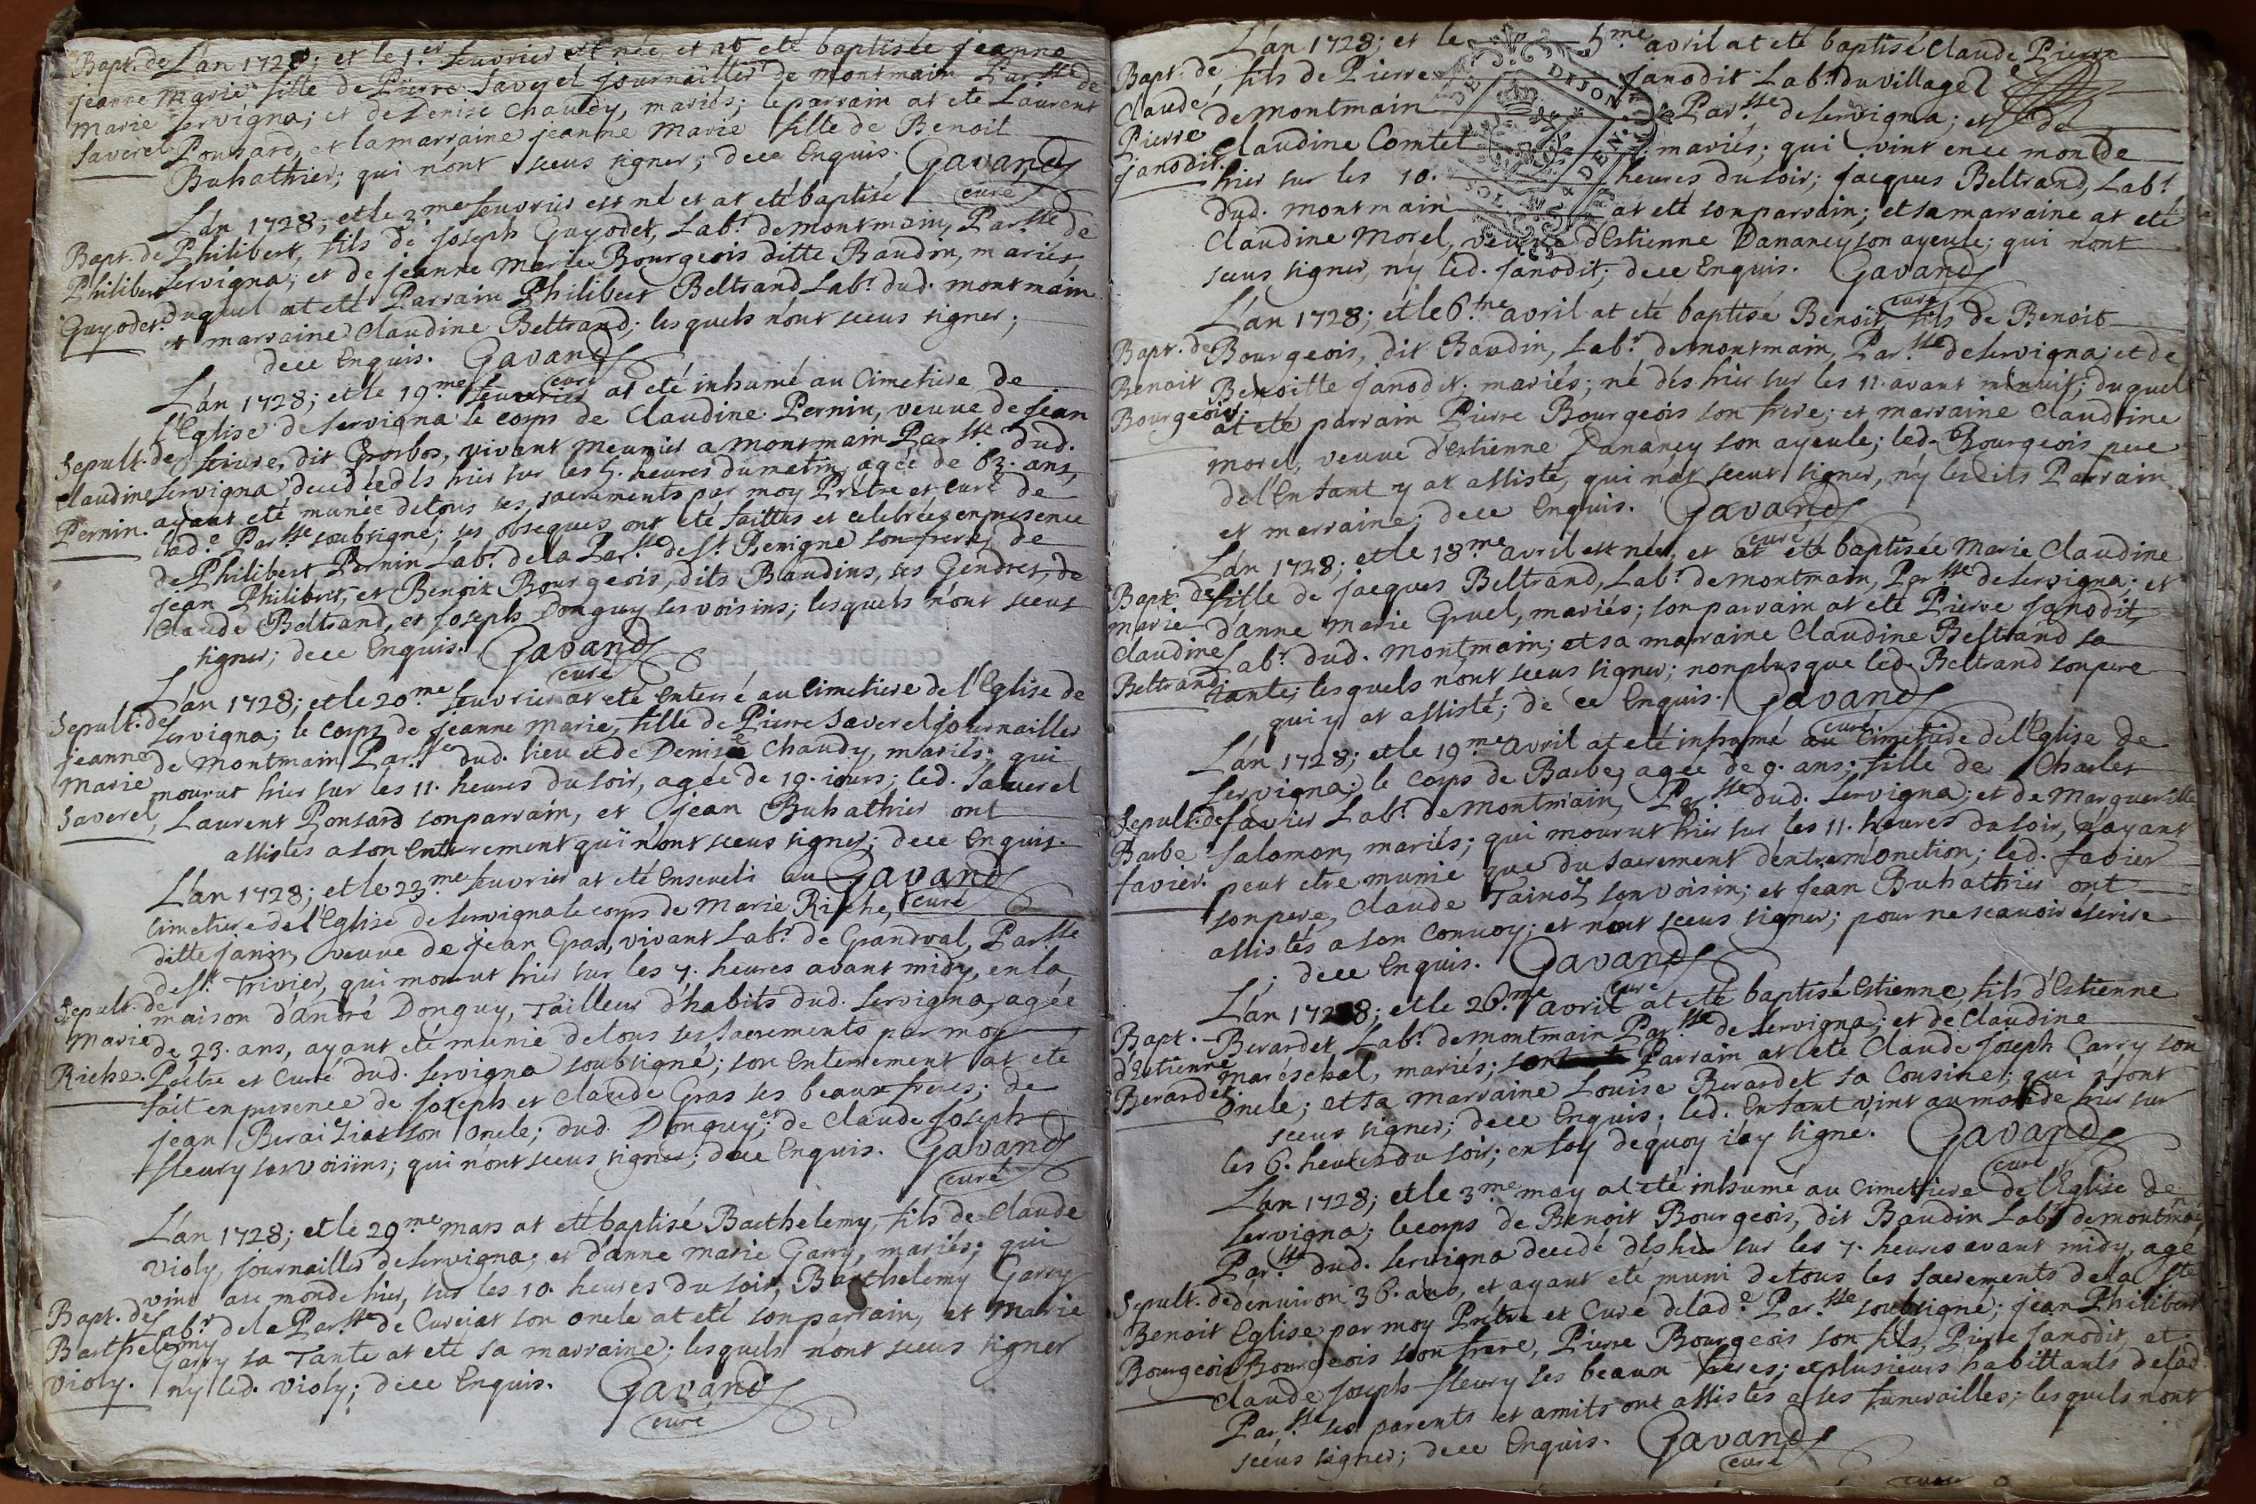 Bapt. de
jeanne
Marie
Saverel
L'an 1728; et le 1.er feuvrier est née et at eté baptisée jeanne
Marie fille de Pierre Saverel journaillier de montmain Par.sse de
Servigna; et de Denise Chaudy, mariés; le parrain at eté Laurent
Ponsard, et la marraine jeanne Marie fille de Benoit
Buhathier; qui n'ont sceus signer; de ce Enquis. Gavand
curé
L'an 1728; et le 3.me feuvrier est né et at eté baptisé
Bapt. de
Philibert
Guyodet.
Philibert, fils de Joseph Guyodet, Lab.r de montmain, Par.sse de
Servigna; et de jeanne Marie Bourgeois ditte Baudin, mariés
duquel at eté Parrain Philibert Beltrand Lab.r dud. montmain
et marraine Claudine Beltrand; lesquels n'ont sceus signer;
de ce Enquis. Gavand
curé
L'an 1728; et le 19.me feuvrier at eté inhumé au Cimetiere de
l'Eglise de Servigna le corps de Claudine Pernin, veuve de jean
Sepult. de
Claudine
Pernin.
dit Grosbos, vivant meunier a montmain Par.sse dud.
Servigna decedée dès hier sur les 5. heures du matin, agée de 63. ans,
ayant eté munie de tous ses sacrements par moy Prêtre et Curé de
lad.e Par.sse soubsigné; ses obseques ont eté faittes et celebrées en presence
de Philibert Pernin Lab.r de la Par.sse de S.t Benigne son frere, de
jean Philibert, et Benoit Bourgeois, dits Baudins, ses Gendres, de
Claude Beltrand, et Joseph Donguy ses voisins; lesquels n'ont sceus
signer; de ce Enquis. Gavand
curé
L'an 1728; et le 20.me feuvrier at eté Enterré au Cimetiere de l'Eglise de
Sepult. de
jeanne
Marie
Saverel,
Servigna; le corps de jeanne Marie, fille de Pierre Saverel journaillier
de montmain Par.sse dud. lieu et de Denise Chaudy, mariés; qui
mourut hier sur les 11. heures du soir, agée de 19. iours; led. Saverel
Laurent Ponsard son parrain, et jean Buhathier ont
assistés a son Enterrement qui n'ont sceus signer; de ce Enquis.
L'an 1728; et le 23.me feuvrier at eté Enseveli au Gavand
curé
Cimetiere de l'Eglise de Servigna le corps de Marie Riche,
ditte janin, veuve de jean Gras, vivant Lab.r de Grandval, Par.sse
de S.t Trivier, qui mourut hier sur les 7. heures avant midy, en la
Sepult. de
Marie
Riche.
maison d'andré Donguy, Tailleur d'habits dud. Servigna, agée
de 23. ans, ayant eté munie de tous ses sacrements par moy
Prêtre et Curé dud. Servigna soubsigné; son Enterrement at eté
fait en presence de joseph et Claude Gras ses beaux freres; de
jean son oncle; dud. Donguy; et de Claude Joseph
fleury ses voisins; qui n'ont sceus signer; de ce Enquis. Gavand
curé
L'an 1728; et le 29.me mars at eté baptisé Barthelemy, fils de Claude
Violy, journaillier de Servigna; et d'anne Marie Garry, mariés; qui
vint au monde hier, sur les 10. heures du soir, Barthelemy Garry
Bapt. de
Barthelemy
Violy.
Lab.r de la Par.sse de Curciat son oncle at eté son parrain, et Marie
Garry sa Tante at eté sa marraine; lesquels n'ont sceus signer
n'y led. Violy; de ce Enquis. Gavand
curé
L'an 1728; et le 5.me avril at eté baptisé Claude Pierre
Bapt. de
Claude
Pierre
janodit
fils de Pierre janodit Lab.r du village
de montmain Par.sse de Servigna; et de
Claudine Comtet mariés; qui vint en ce monde
hier sur les 10. heures du soir; jacques Beltrand, Lab.r
dud. montmain at eté son parrain; et sa marraine at eté
Claudine Morel, veuve d'Estienne Dananey son ayeule; qui n'ont
sceus signer, n'y led. janodit; de ce Enquis. Gavand
curé
L'an 1728; et le 6.me avril at eté baptisé Benoit, fils de Benoit
Bapt. de
Benoit
Bourgeois.
Bourgeois, dit Baudin, Lab.r de montmain, Par.sse de Servigna; et de
Benoitte janodit. mariés; né dès hier sur les 11. avant minuit; duquel
at eté parrain Pierre Bourgeois son frere; et marraine Claudine
Morel, veuve d'Estienne Dananey son ayeule; led. Bourgeois pere
de l'Enfant y at assisté, qui n'at sceut signer, n'y lesdits Parrain
et marraine; de ce Enquis. Gavand
curé
L'an 1728; et le 18.me avril est née, et at eté baptisée Marie Claudine
Bapt. de
Marie
Claudine
Beltrand.
fille de jacques Beltrand, Lab.r de montmain, Par.sse de Servigna; et
d'anne Marie Gruel, mariés; son parrain at eté Pierre janodit,
Lab.r dud. montmain; et sa marraine Claudine Beltrand sa
tante; lesquels n'ont sceus signer; non plus que led. Beltrand son pere
qui y at assisté; de ce Enquis. Gavand
curé
L'an 1728; et le 19.me avril at eté inhumé au Cimetiere de l'Eglise de
Servigna; le corps de Barbe, agée de 9. ans; fille de Charles
Sepult. de
Barbe
favier.
favier Lab.r de montmain, Par.sse dud. Servigna; et de Margueritte
Salomon, mariés; qui mourut hier sur les 11. heures du soir, n'ayant
peut etre munie que du sacrement d'extremonction; led. favier
son pere, Claude Tainoz son voisin; et jean Buhathier ont
assistés a son Convoy; et n'ont sceus signer; pour ne scavoir escrire
de ce Enquis. Gavand
curé
L'an 1728; et le 26.me avril at eté baptisé Estienne, fils d'Estienne
Bapt.
d'Estienne
Berardet
Berardet Lab.r de montmain Par.sse de Servigna; et de Claudine
Maréschal, mariés; son Parrain at eté Claude Joseph Carry son
oncle; et sa marraine Louise Berardet sa Cousine; qui n'ont
sceus signer; de ce Enquis; led. Enfant vint au monde hier sur
les 6. heures du soir; en foy de quoy i'ay signé. Gavand
curé
L'an 1728; et le 3.me may at eté inhumé au Cimetiere de l'Eglise de
Servigna; le corps de Benoit Bourgeois, dit Baudin Lab.r de montmain,
Par.sse dud. Servigna decedé dès hier sur les 7. heures avant midy, agé
Sepult. de
Benoit
Bourgeois
d'environ 36. ans, et ayant eté muni de tous les sacrements de la S.te
Eglise par moy Prêtre et Curé de lad.e Par.sse soubsigné; jean Philibert
Bourgeois son frere, Pierre Bourgeois son fils, Pierre janodit, et
Claude Joseph fleury ses beaux freres; et plusieurs habittants de lad.
Par.sse ses parents et amits ont assistés a ses funerailles; lesquels n'ont
sceus signer; de ce Enquis. Gavand
curé